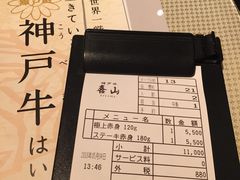 世界一
きてい
神戸牛
こうべ
はい
喜山
13
21
2
1
メニュー名
極上赤身 120g 1 5,500
ステーキ赤身 180g 1 5,500
小計 11,000
サービス料 0
外税 880
13:46